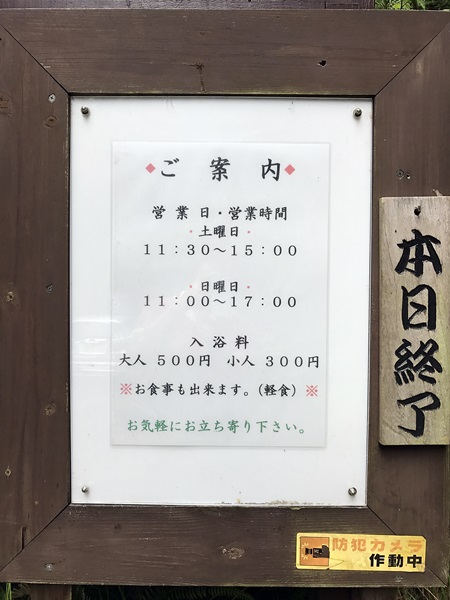 ◆ご 案 内◆
営 業 日・営業時間
・土曜日・
11：30～15：00
・日曜日・
11：00～17：00
入 浴 料
大人 500円 小人 300円
※お食事も出来ます。（軽食）※
お気軽にお立ち寄り下さい。
本日終了
防犯カメラ
作動中